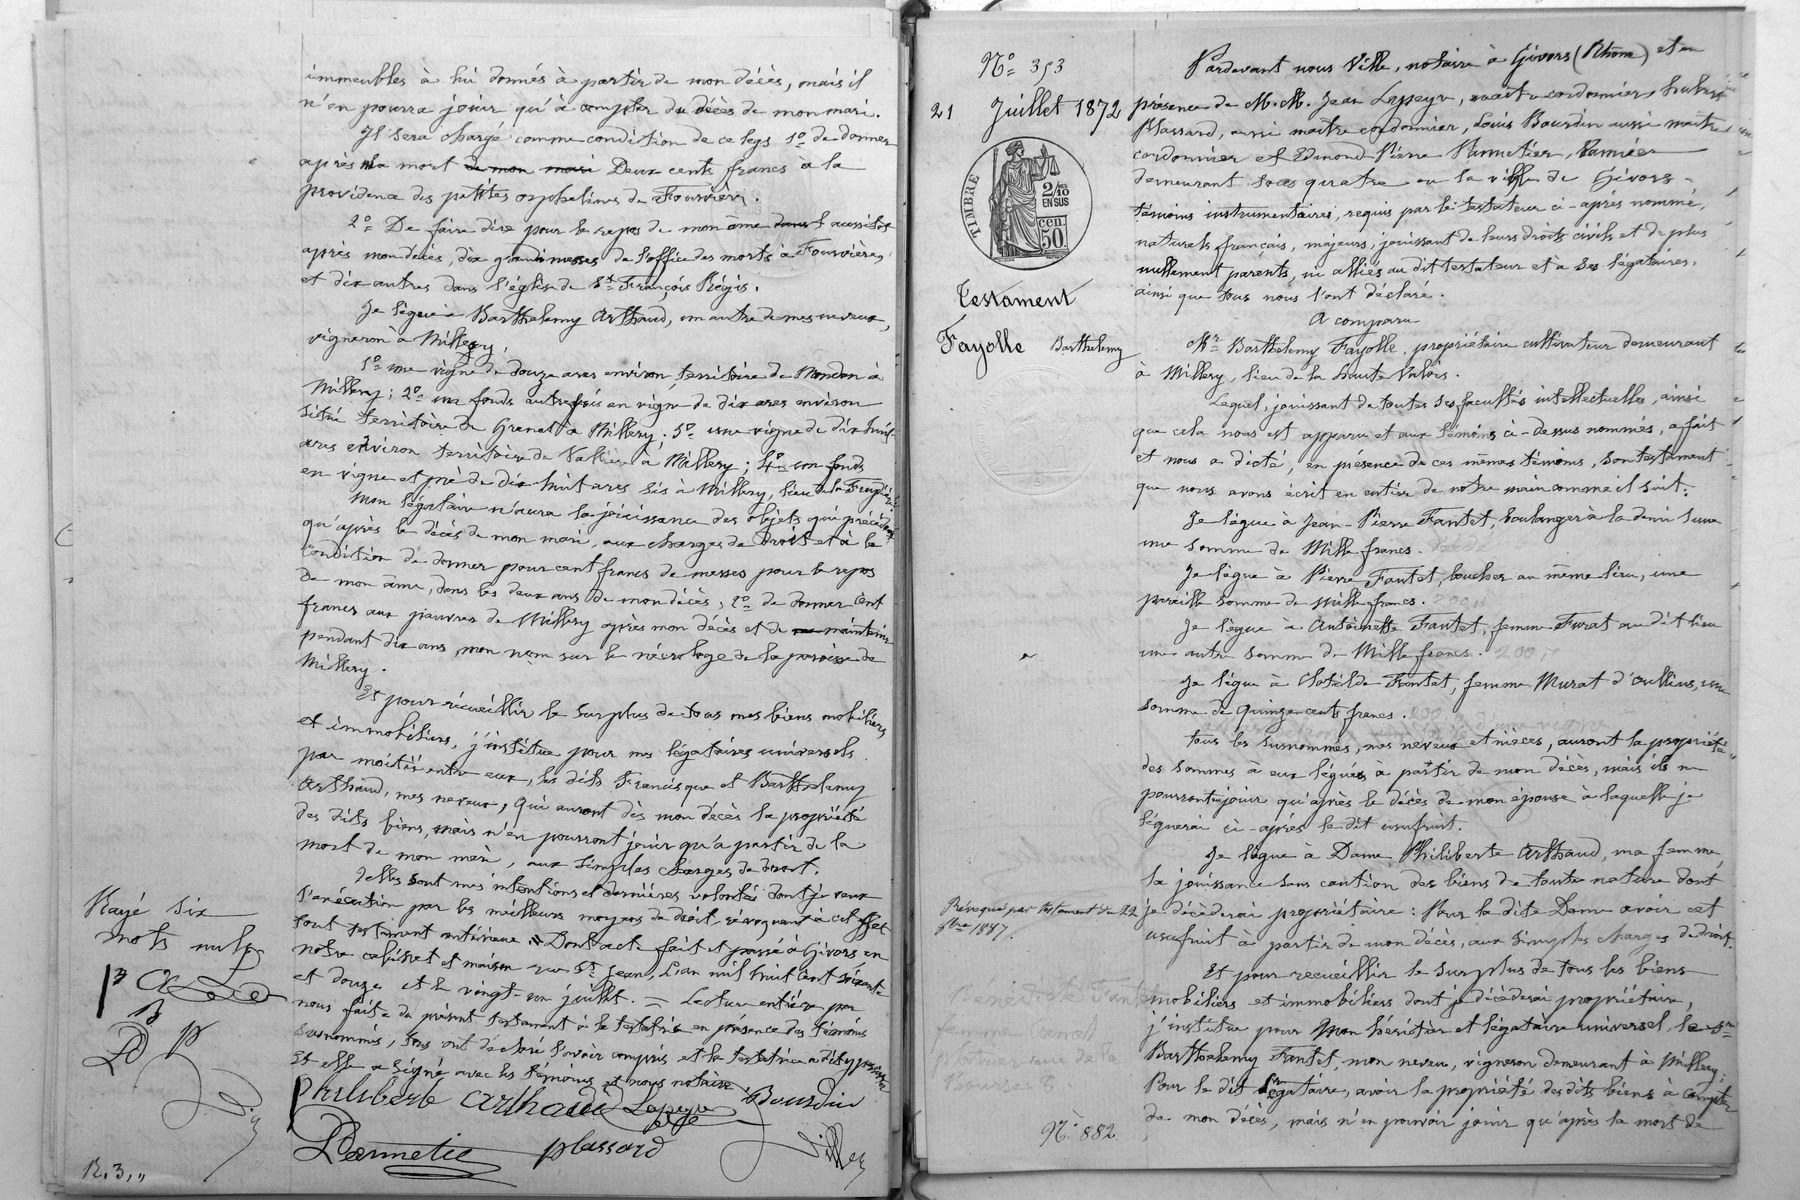 immeubles à lui donnés à partir de mon décès, mais il
n'en pourra jouir qu'à compter du décès de mon mari.
Il sera chargé comme condition de ce legs 1º de donner
après ma mort de mon mari Deux cents francs à la
providence des petites orphelines de Fourvière.
2º De faire dire pour le repos de mon âme dans aussitôt
après mon décès, dix grandmesses de l'office des morts à Fourvière,
et dix autres dans l'église de St François Régis.
Je lègue à Barthelemy Arthaud, un autre de mes neveux,
vigneron à Millery,
1º une vigne de douze ares environ, territoire de à
Millery; 2º un fonds autrefois en vigne de dix ares environ
situé territoire de Grenat à Millery; 3º une vigne de dix huit
ares environ territoire de à Millery; 4º un fonds
en vigne et pré de dix huit ares sis à Millery, lieu de la
Mon légataire n'aura la jouissance des objets qui précèdent
qu'après le décès de mon mari, aux charges de droit et à la
condition de donner pour cent francs de messes pour le repos
de mon âme, dans les deux ans de mon décès; 2º de donner cent
francs aux pauvres de Millery après mon décès et de maintenir
pendant dix ans, mon nom sur le nécrologe de la paroisse de
Millery.
Et pour recueillir le surplus de tous mes biens mobiliers
et immobiliers, j'institue pour mes légataires universels
par moitié entre eux, les dits Francisque et Barthelemy
Arthaud, mes neveux, qui auront dès mon décès la propriété
des dits biens, mais n'en pourront jouir qu'à partir de la
mort de mon mari, aux simples charges de droit.
Telles sont mes intentions et dernières volontés dont je veux
l'exécution par les meilleurs moyens de droit, révoquant à cet effet
tout testament antérieur. Dont acte fait et passé à Givors, en
notre cabinet et maison rue St Jean, L'an mil huit cent soixante
et douze et le vingt-un juillet. = Lecture entière par
nous faite du présent testament à la testatrice en présence des témoins
susnommés, tous ont déclaré l'avoir compris et la testatrice a dit y persister
Et elle a signé avec les témoins et nous notaire.
Philiberte Arthaud Lapeyre Bourdin
Pannetie plassard Ville
Rayé six
mots nuls
P A
B
LD P
R. 3, "
Nº 353
21 Juillet 1872
TIMBRE
2/10 EN SUS
50 cen.
Testament
Fayolle Barthelemy
Pardevant nous Ville, notaire à Givors (Rhône) et en
présence de M.M. Jean Lapeyre, maître cordonnier, hubert
Plassard, aussi maître cordonnier, Louis Bourdin aussi maître
cordonnier et Edmond Pierre Pannetier,
demeurant tous quatre en la ville de Givors
témoins instrumentaires, requis par le testateur ci-après nommé,
naturels français, majeurs, jouissant de leurs droits civils et de plus
nullement parents, ni alliés au dit testateur et à ses légataires,
ainsi que tous nous l'ont déclaré.
A comparu
Mr Barthelemy Fayolle, propriétaire cultivateur demeurant
à Millery, lieu de la haute Valois.
Lequel, jouissant de toutes ses facultés intellectuelles, ainsi
que cela nous est apparu et aux témoins ci-dessus nommés, a fait
et nous a dicté, en présence de ces mêmes témoins, son testament
que nous avons écrit en entier de notre main comme il suit:
Je lègue à Jean-Pierre Fantet, boulanger à la demi lune
une somme de Mille francs.
Je lègue à Pierre Fantet, boucher au même lieu, une
pareille somme de Mille francs.
Je lègue à Antoinette Fantet, femme Furat au dit lieu
une autre somme de Mille francs.
Je lègue à Clotilde Fantet, femme Murat d'oullins, une
somme de quinze cents francs.
Tous les susnommés, mes neveux et nièces, auront la propriété
des sommes à eux légués à partir de mon décès, mais ils ne
pourront jouir qu'après le décès de mon épouse à laquelle je
léguerai ci-après le dit usufruit.
Je lègue à Dame Philiberte Arthaud, ma femme,
la jouissance sans caution des biens de toute nature dont
je décèderai propriétaire: Pour la dite Dame avoir cet
usufruit à partir de mon décès, aux simples charges de droit.
Et pour recueillir le surplus de tous les biens
mobiliers et immobiliers dont je décèderai propriétaire,
j'institue pour mon héritier et légataire universel, le Sr
Barthelemy Fantet, mon neveu, vigneron demeurant à Millery;
Pour le dit légataire, avoir la propriété des dits biens à compter
de mon décès, mais n'en pouvoir jouir qu'après la mort de
Révoqué par testament du 22
Bénédicte Fantet
femme
rue de la
Bourse 8
Nº 882